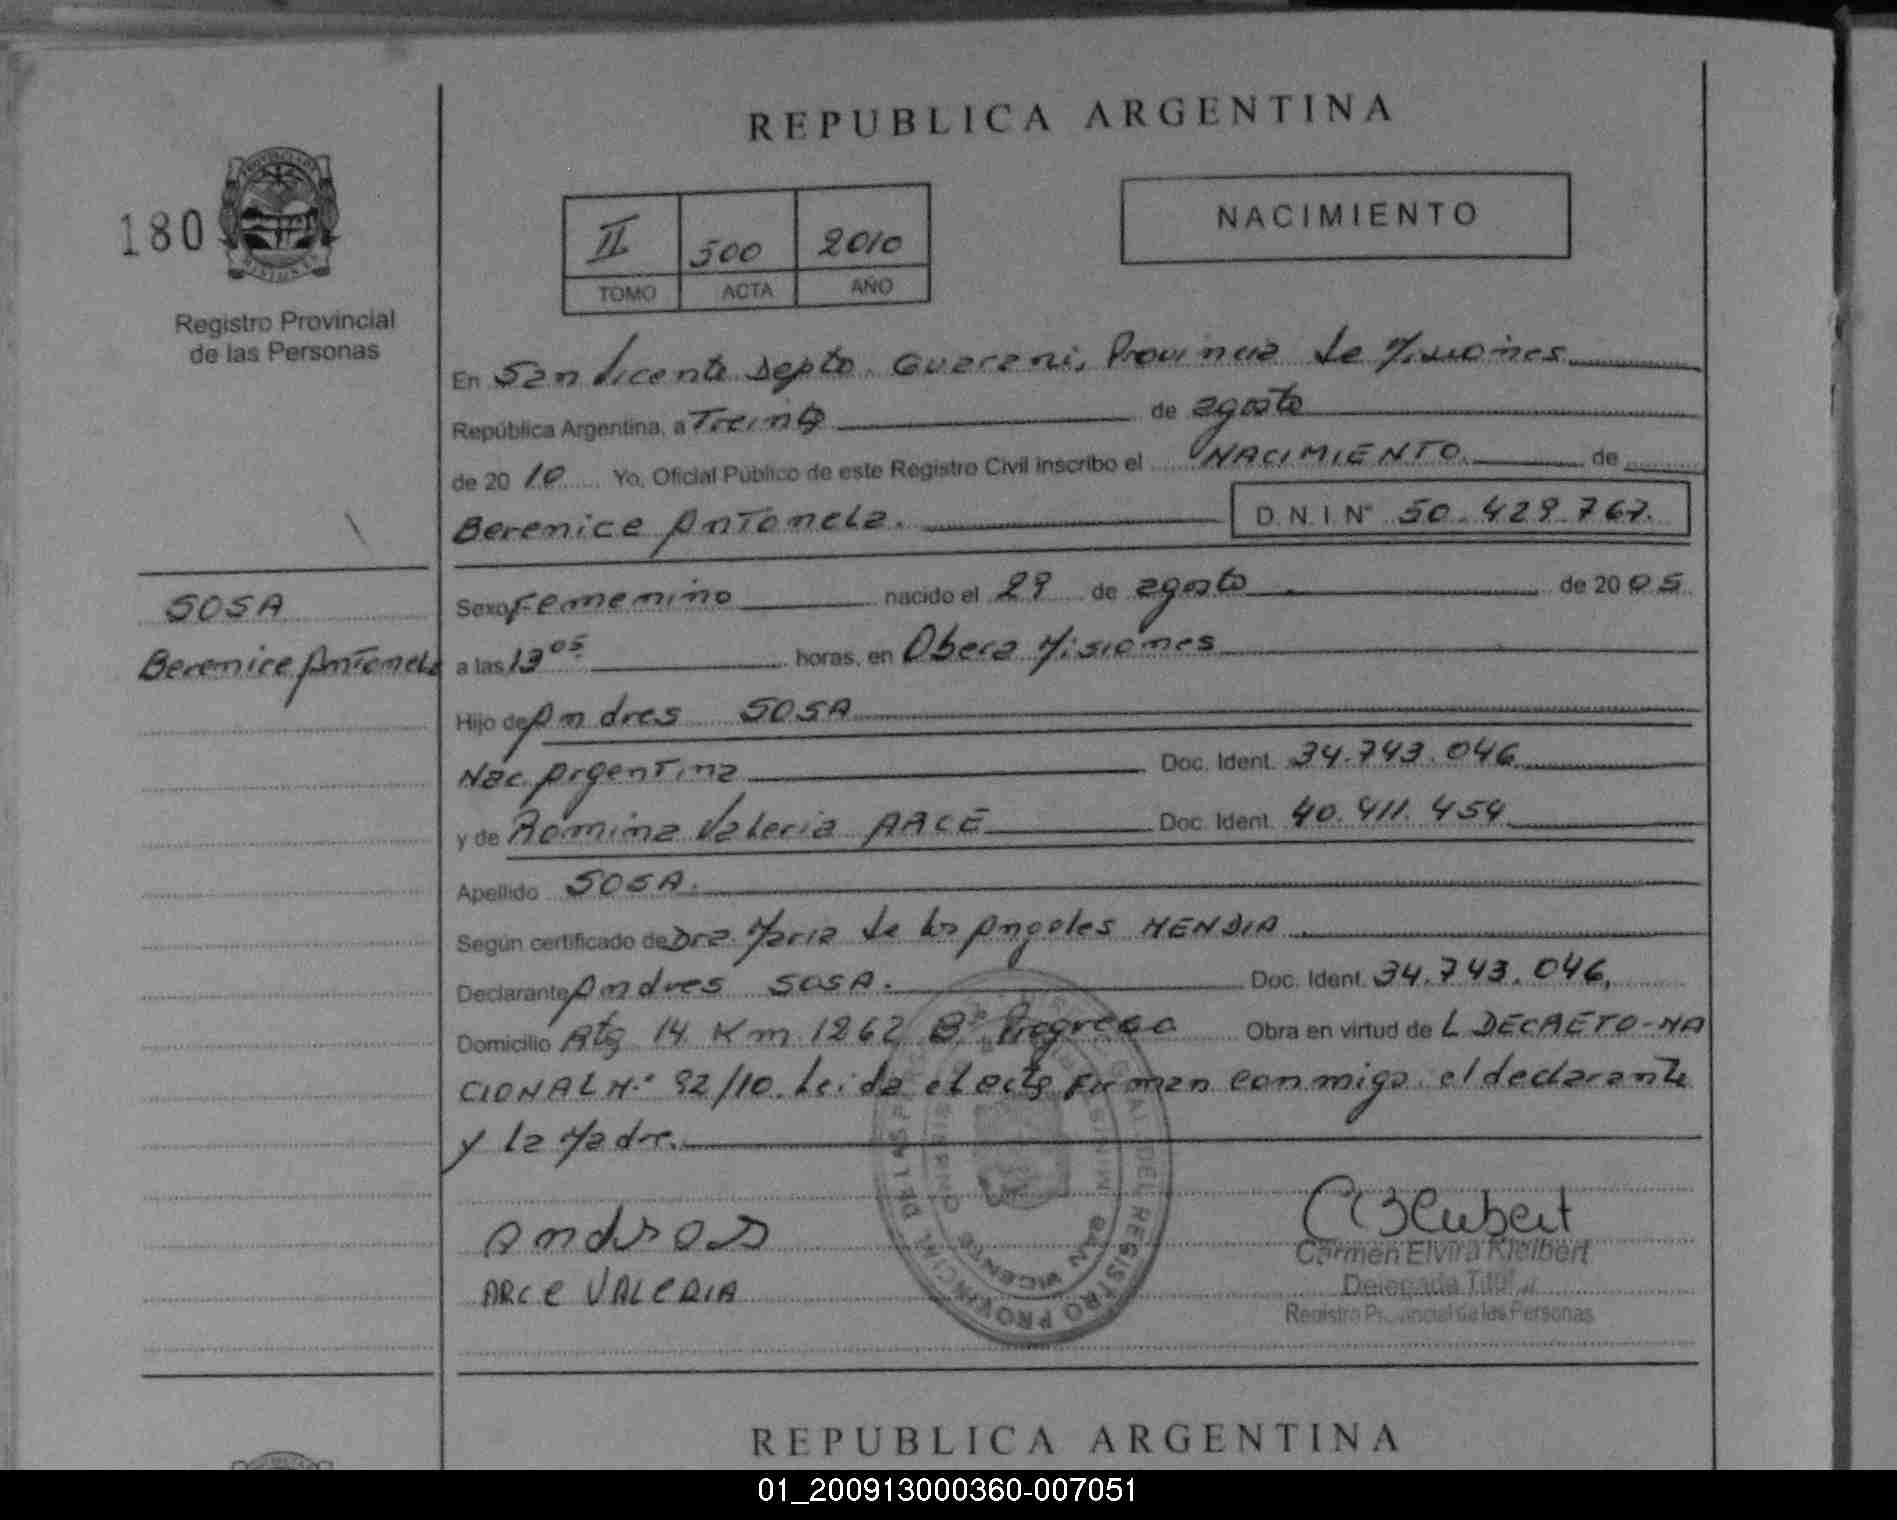 REPUBLICA ARGENTINA
180
Registro Provincial
de las Personas
II 500 2010
TOMO ACTA AÑO
NACIMIENTO
En San Vicente Depto. Guarani, Provincia de Misiones
República Argentina, a Treinta de agosto
de 2010 Yo, Oficial Público de este Registro Civil inscribo el NACIMIENTO de
Berenice Antonela. D.N.I. N° 50.429.767.
SOSA
Berenice Antonela
Sexo Femenino nacido el 29 de agosto de 2005
a las 13 05 horas, en Obera Misiones
Hijo de Andres SOSA
Nac. Argentina Doc. Ident. 34.743.046
y de Romina Valeria ARCE Doc. Ident. 40.411.454
Apellido SOSA.
Según certificado de Dra. Maria de los Angeles MENDIA
Declarante Andres SOSA. Doc. Ident. 34.743.046,
Domicilio Rta 14 Km 1262 B° Progreso Obra en virtud de L DECRETO-NA
CIONAL N.° 92/10. Leida el acta Firman conmigo el declarante
y la Madre.
ARCE VALERIA
Carmen Elvira Kleibert
Delegada Titular
Registro Provincial de las Personas
SAN VICENTE
REPUBLICA ARGENTINA
01_200913000360-007051